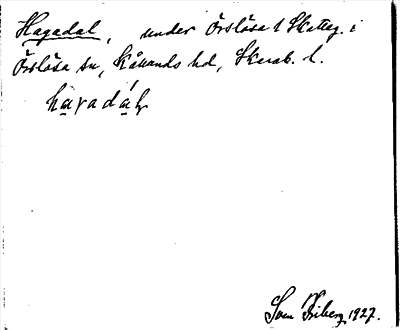 Hagadal, under Örslösa 1 Skatteg. i
Örslösa sn, Kållands hd, Skarab. l.
hagadál
Sven Friberg 1927.